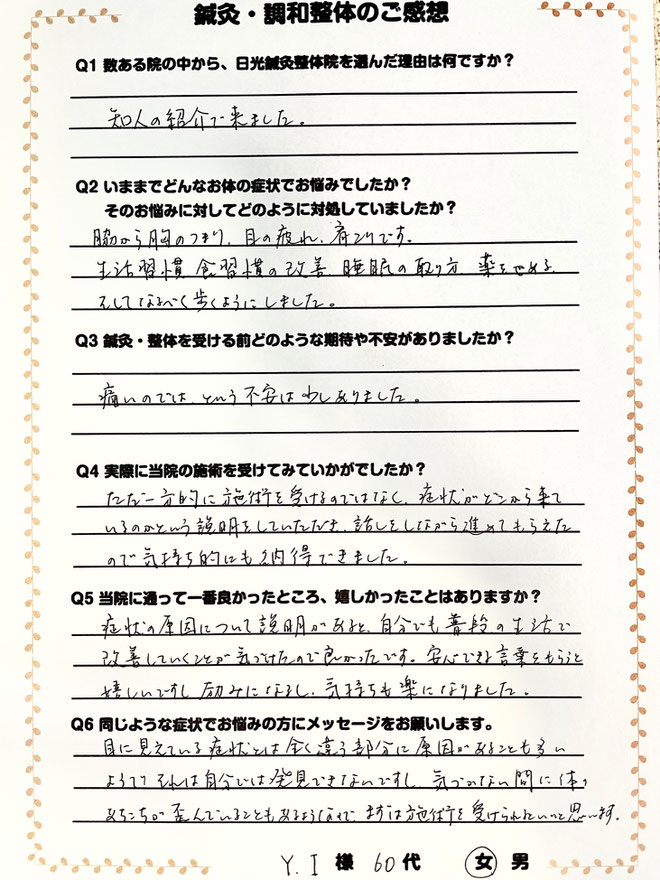 鍼灸・調和整体のご感想
Q1 数ある院の中から、日光鍼灸整体院を選んだ理由は何ですか？
知人の紹介で来ました。
Q2 いままでどんなお体の症状でお悩みでしたか？
そのお悩みに対してどのように対処していましたか？
脇から胸のつまり、目の疲れ、肩こりです。
生活習慣 食習慣の改善 睡眠の取り方 薬をやめる
そしてなるべく歩くようにしました。
Q3 鍼灸・整体を受ける前どのような期待や不安がありましたか？
痛いのでは、という不安は少しありました。
Q4 実際に当院の施術を受けてみていかがでしたか？
ただ一方的に施術を受けるのではなく、症状がどこから来て
いるのかという説明をしていただき、話しをしながら進めてもらえた
ので気持ち的にも納得できました。
Q5 当院に通って一番良かったところ、嬉しかったことはありますか？
症状の原因について説明があると、自分でも普段の生活で
改善していくことが気づけたので良かったです。安心できる言葉をもらうと
嬉しいですし励みになるし、気持ちも楽になりました。
Q6 同じような症状でお悩みの方にメッセージをお願いします。
目に見えている症状とは全く違う部分に原因があることも多い
ようで、それは自分では発見できないですし、気づかない間に体の
あちこちが歪んでいることもあるようなので、まずは施術を受けられるといいと思います。
Y. I 様 60代 女 男